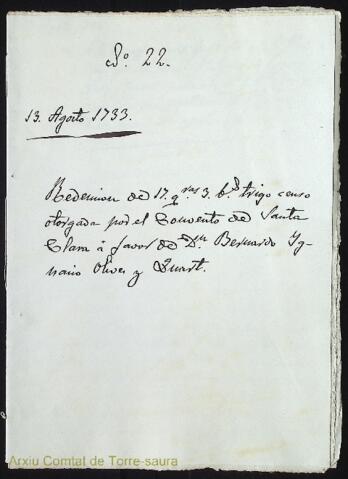 Nº 22.
13. Agosto 1733.
Redencion de 17. qras 3. bs trigo censo
otorgada por el Convento de Santa
Clara á favor de Dn Bernardo Yg-
nacio Olives y Squart.
Arxiu Comtat de Torre-saura